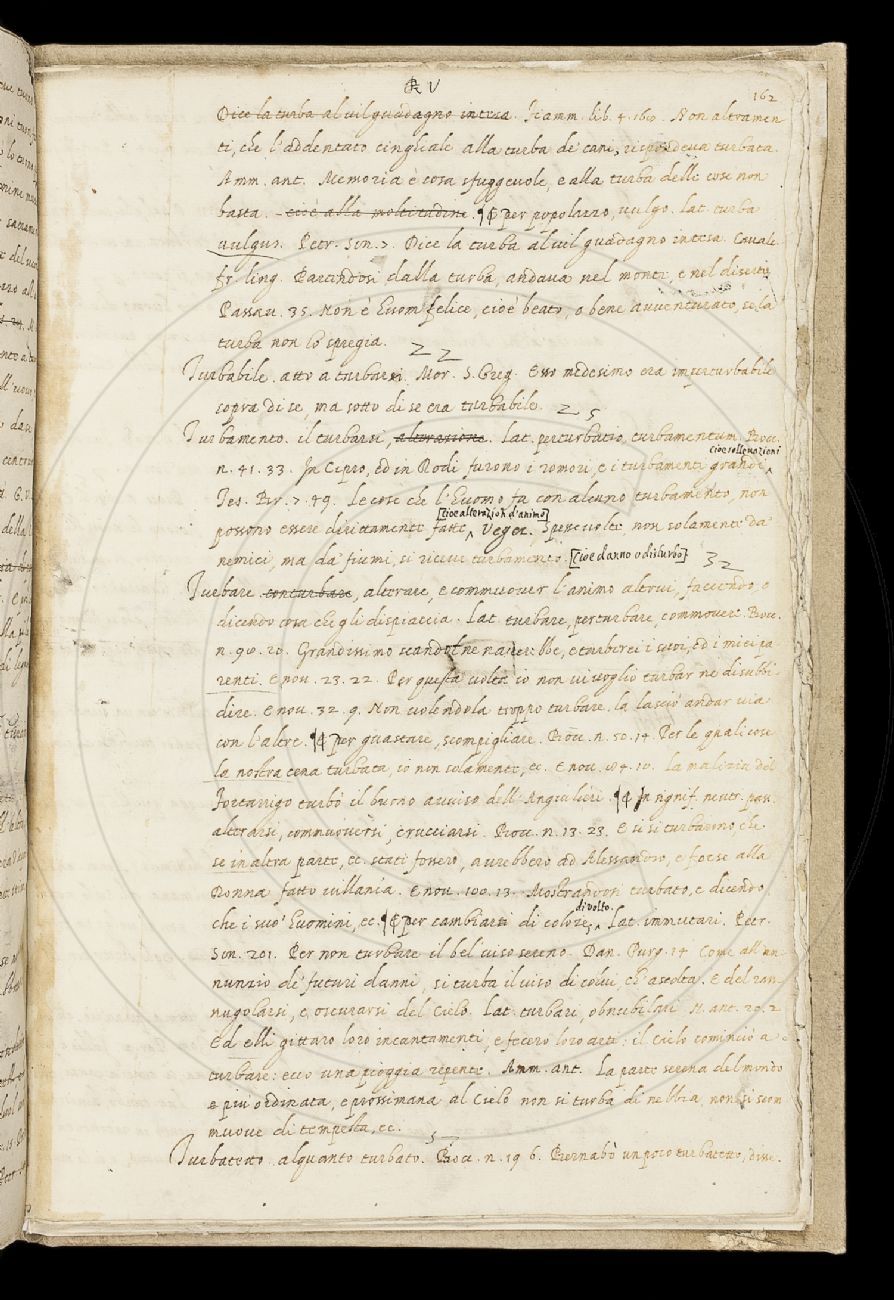 R V
162
Dice la turba al vil guadagno intesa. Fiamm. lib. 4. 160. Non altramen
ti, che l'addentato cinghiale alla turba de' cani, rispondeva turbata.
Amm. ant. Memoria è cosa sfuggevole, e alla turba delle cose non
basta. cioè alla moltitudine. ¶ per popolazzo, vulgo. Lat. turba
vulgus. Petr. Son. 7. Dice la turba al vil guadagno intesa. Cavalc.
fr. ling. Partendosi dalla turba, andava nel monte, e nel diserto
Passav. 35. Non è Huom felice, cioè beato, o bene avventurato, se la
turba non lo spregia.
22
Turbabile. atto a turbarsi. Mor. S. Greg. Esso medesimo era imperturbabile
sopra di se, ma sotto di se era turbabile.
25
Turbamento. il turbarsi, alterazione. Lat. perturbatio, turbamentum. Bocc.
cioe sollevazioni
n. 41. 33. In Cipro, ed in Rodi furono i romori, e i turbamenti grandi,
Tes. Br. 7. 49. Le cose che l'Huomo fa con alcuno turbamento, non
[cioe alterazion d'animo]
possono essere dirittamente fatte, Veget. Spessevolte, non solamente da
nemici, ma da' fiumi, si riceve turbamento. [cioe danno o disturbo]
32
Turbare. conturbare, alterare, e commuover l'animo altrui, facendo, o
dicendo cosa che gli dispiaccia. Lat. turbare, perturbare, commovere. Bocc.
n. 90. 20. Grandissimo scandol ne nascerebbe, e turberei i suoi, ed i miei pa
renti. E nov. 23. 22. Per questa volta io non vi voglio turbar ne disubbi
dire. E nov. 32. 9. Non volendola troppo turbare, la lasciò andar via
con l'altre. ¶ per guastare, scompigliare. Bocc. n. 50. 14. Per le quali cose
la nostra cena turbata, io non solamente, ec. E nov. 84. 10. La malizia del
Fortarrigo turbò il buono avviso dell'Angiulieri. ¶ In signif. neutr. pass.
alterarsi, commuoversi, crucciarsi. Bocc. n. 13. 23. E si si turbarono, che
se in altra parte, ec. stati fossero, avrebbero ad Alessandro, e forse alla
Donna fatto villania. E nov. 100. 13. Mostrandosi turbato, e dicendo
di volto.
che i suo' Huomini, ec. ¶ per cambiarsi di colore, Lat. immutari. Petr.
Son. 201. Per non turbare il bel viso sereno. Dan. Purg. 14 Come all'an
nunzio de' futuri danni, si turba il viso di colui, ch'ascolta. E del ran
nugolarsi, e oscurarsi del Cielo. Lat. turbari, obnubilari N. ant. 20. 2
Ed elli gittaro loro incantamenti, e fecero loro arti: il Cielo cominciò a
turbare: ecco una pioggia repente. Amm. ant. La parte serena del mondo
e piu ordinata, e prossimana al Cielo non si turba di nebbia, non si scom
muove di tempesta, ec.
Turbatetto. alquanto turbato. Bocc. n. 19 6. Bernabò un poco turbatetto, disse.